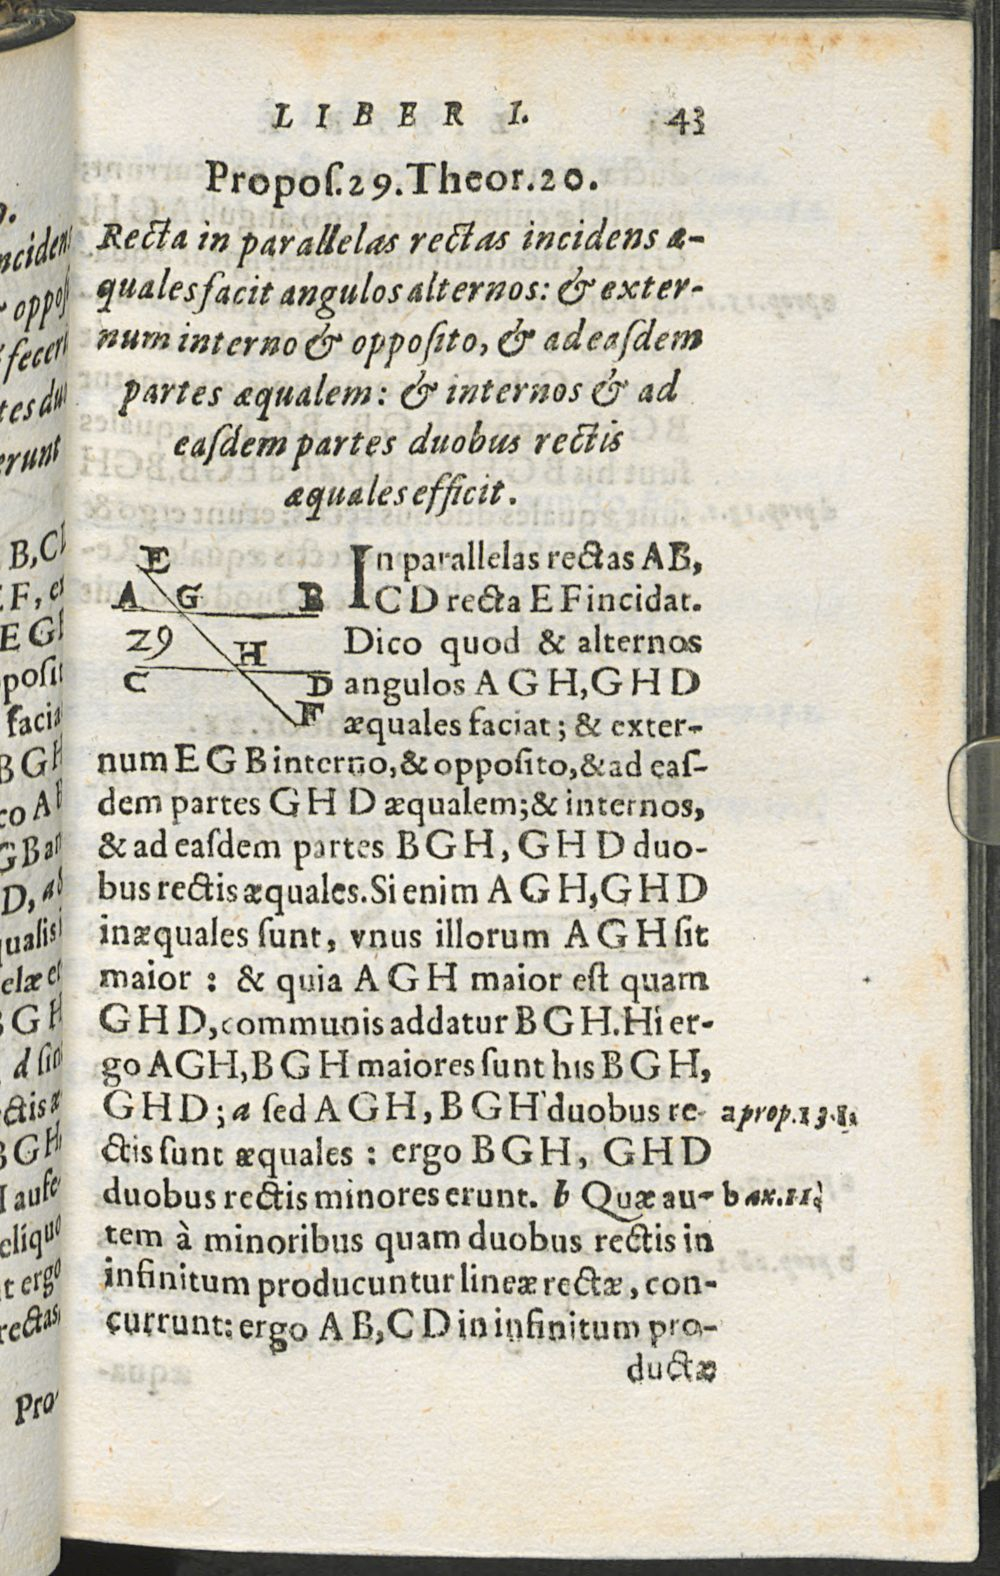 LIBER I. 43
Propoſ.29.Theor.20.
Recta in parallelas rectas incidens æ-
quales facit angulos alternos: & exter-
num interno & oppoſito, & ad eaſdem
partes æqualem: & internos & ad
eaſdem partes duobus rectis
æquales efficit.
E
A G B
29
H
C D
F
In parallelas rectas AB,
CD recta EF incidat.
Dico quod & alternos
angulos AGH, GHD
æquales faciat; & exter-
num EGB interno, & oppoſito, & ad eaſ-
dem partes GHD æqualem; & internos,
& ad eaſdem partes BGH, GHD duo-
bus rectis æquales. Si enim AGH, GHD
inæquales ſunt, vnus illorum AGH ſit
maior : & quia AGH maior eſt quam
GHD, communis addatur BGH. Hi er-
go AGH, BGH maiores ſunt his BGH,
GHD; a ſed AGH, BGH duobus re- a prop.13.1.
ctis ſunt æquales : ergo BGH, GHD
duobus rectis minores erunt. b Quæ au- b ax.11.
tem à minoribus quam duobus rectis in
infinitum producuntur lineæ rectæ, con-
currunt: ergo AB, CD in infinitum pro-
ductæ